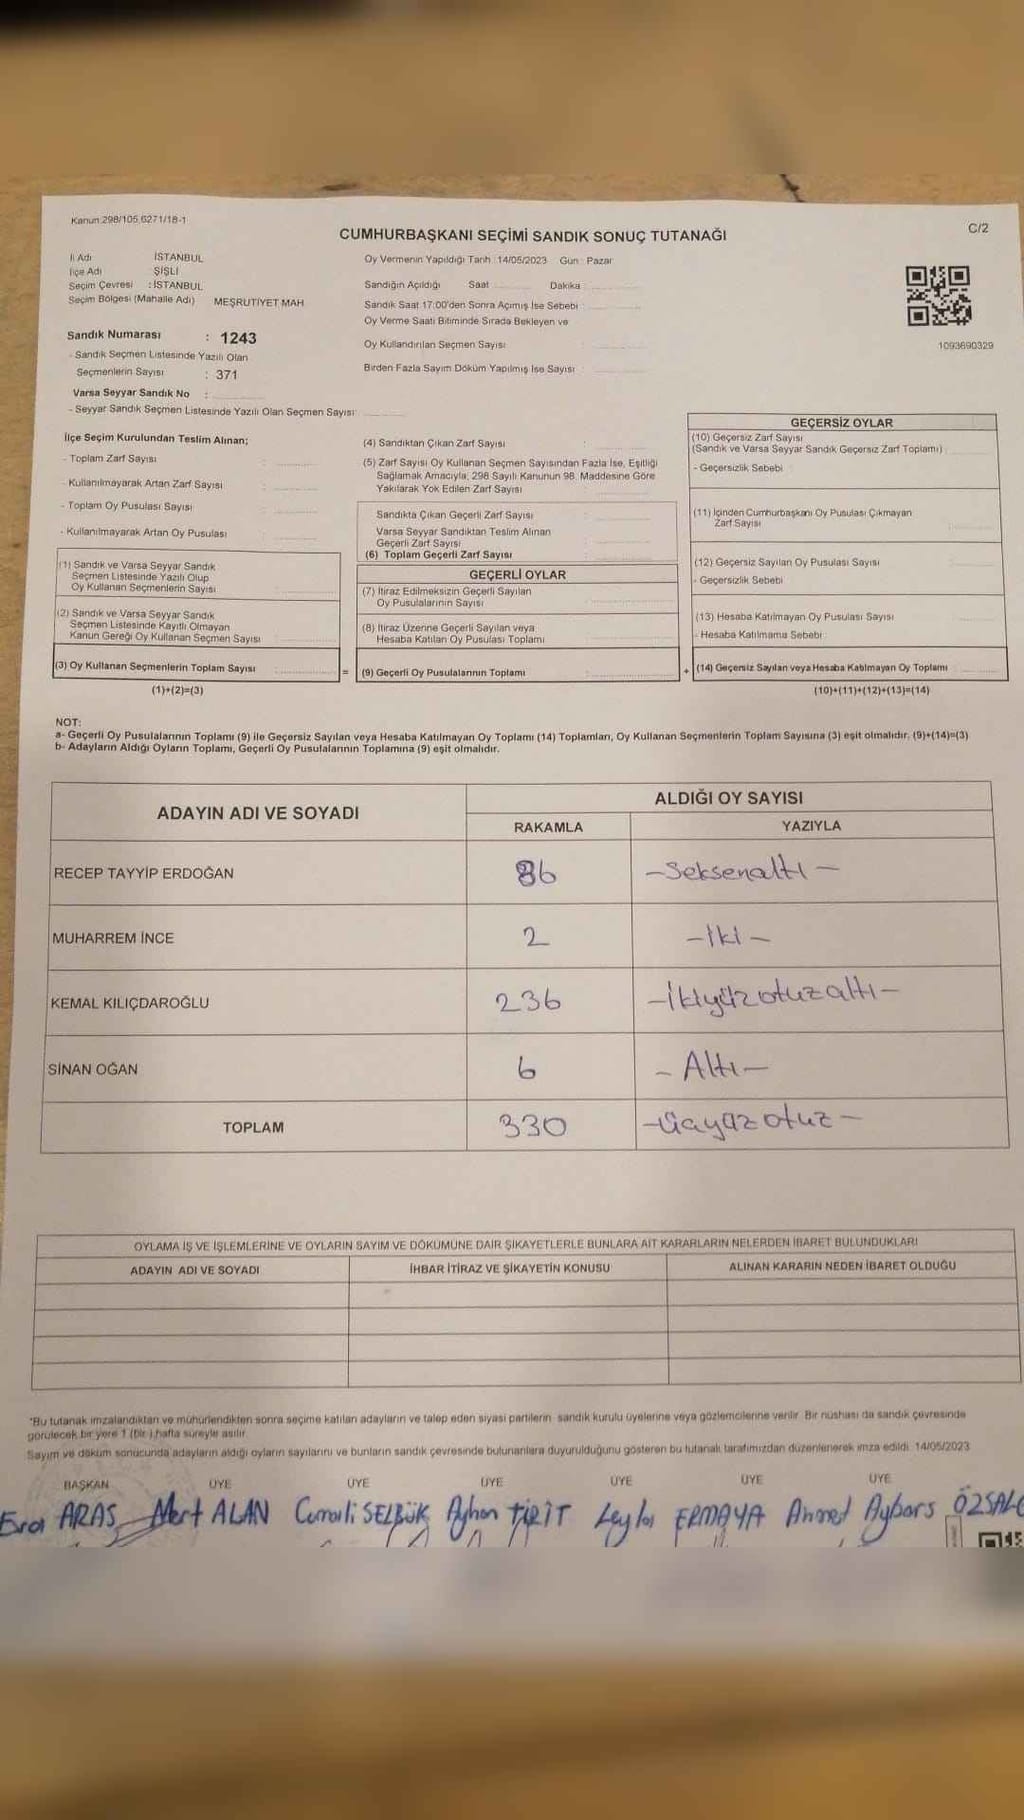 Kanun 298/105,6271/18-1
C/2
CUMHURBAŞKANI SEÇİMİ SANDIK SONUÇ TUTANAĞI
İl Adı İSTANBUL
İlçe Adı ŞİŞLİ
Seçim Çevresi : İSTANBUL
Seçim Bölgesi (Mahalle Adı) MEŞRUTİYET MAH
Sandık Numarası : 1243
- Sandık Seçmen Listesinde Yazılı Olan
Seçmenlerin Sayısı : 371
Varsa Seyyar Sandık No :
- Seyyar Sandık Seçmen Listesinde Yazılı Olan Seçmen Sayısı
Oy Vermenin Yapıldığı Tarih : 14/05/2023 Gün : Pazar
Sandığın Açıldığı Saat Dakika :
Sandık Saat 17:00'den Sonra Açımış İse Sebebi :
Oy Verme Saati Bitiminde Sırada Bekleyen ve
Oy Kullandırılan Seçmen Sayısı :
Birden Fazla Sayım Döküm Yapılmış İse Sayısı :
1093690329
İlçe Seçim Kurulundan Teslim Alınan;
- Toplam Zarf Sayısı :
- Kullanılmayarak Artan Zarf Sayısı :
- Toplam Oy Pusulası Sayısı :
- Kullanılmayarak Artan Oy Pusulası :
(1) Sandık ve Varsa Seyyar Sandık
Seçmen Listesinde Yazılı Olup
Oy Kullanan Seçmenlerin Sayısı :
(2) Sandık ve Varsa Seyyar Sandık
Seçmen Listesinde Kayıtlı Olmayan
Kanun Gereği Oy Kullanan Seçmen Sayısı :
(3) Oy Kullanan Seçmenlerin Toplam Sayısı =
(1)+(2)=(3)
(4) Sandıktan Çıkan Zarf Sayısı :
(5) Zarf Sayısı Oy Kullanan Seçmen Sayısından Fazla İse, Eşitliği
Sağlamak Amacıyla; 298 Sayılı Kanunun 98. Maddesine Göre
Yakılarak Yok Edilen Zarf Sayısı :
Sandıkta Çıkan Geçerli Zarf Sayısı :
Varsa Seyyar Sandıktan Teslim Alınan
Geçerli Zarf Sayısı
(6) Toplam Geçerli Zarf Sayısı :
GEÇERLİ OYLAR
(7) İtiraz Edilmeksizin Geçerli Sayılan
Oy Pusulalarının Sayısı :
(8) İtiraz Üzerine Geçerli Sayılan veya
Hesaba Katılan Oy Pusulası Toplamı :
(9) Geçerli Oy Pusulalarının Toplamı : +
GEÇERSİZ OYLAR
(10) Geçersiz Zarf Sayısı
(Sandık ve Varsa Seyyar Sandık Geçersiz Zarf Toplamı) :
- Geçersizlik Sebebi
(11) İçinden Cumhurbaşkanı Oy Pusulası Çıkmayan
Zarf Sayısı
(12) Geçersiz Sayılan Oy Pusulası Sayısı
- Geçersizlik Sebebi
(13) Hesaba Katılmayan Oy Pusulası Sayısı
- Hesaba Katılmama Sebebi :
(14) Geçersiz Sayılan veya Hesaba Katılmayan Oy Toplamı
(10)+(11)+(12)+(13)=(14)
NOT:
a- Geçerli Oy Pusulalarının Toplamı (9) ile Geçersiz Sayılan veya Hesaba Katılmayan Oy Toplamı (14) Toplamları, Oy Kullanan Seçmenlerin Toplam Sayısına (3) eşit olmalıdır. (9)+(14)=(3)
b- Adayların Aldığı Oyların Toplamı, Geçerli Oy Pusulalarının Toplamına (9) eşit olmalıdır.
ADAYIN ADI VE SOYADI
ALDIĞI OY SAYISI
RAKAMLA YAZIYLA
RECEP TAYYİP ERDOĞAN 86 -Seksenaltı-
MUHARREM İNCE 2 -İki-
KEMAL KILIÇDAROĞLU 236 -İkiyüzotuzaltı-
SİNAN OĞAN 6 - Altı-
TOPLAM 330 -Üçyüzotuz-
OYLAMA İŞ VE İŞLEMLERİNE VE OYLARIN SAYIM VE DÖKÜMÜNE DAİR ŞİKAYETLERLE BUNLARA AİT KARARLARIN NELERDEN İBARET BULUNDUKLARI
ADAYIN ADI VE SOYADI İHBAR İTİRAZ VE ŞİKAYETİN KONUSU ALINAN KARARIN NEDEN İBARET OLDUĞU
*Bu tutanak imzalandıktan ve mühürlendikten sonra seçime katılan adayların ve talep eden siyasi partilerin sandık kurulu üyelerine veya gözlemcilerine verilir. Bir nüshası da sandık çevresinde
görülecek bir yere 1 (bir) hafta süreyle asılır.
Sayım ve döküm sonucunda adayların aldığı oyların sayılarını ve bunların sandık çevresinde bulunanlara duyurulduğunu gösteren bu tutanak tarafımızdan düzenlenerek imza edildi. 14/05/2023
BAŞKAN ÜYE ÜYE ÜYE ÜYE ÜYE ÜYE
ARAS Mert ALAN Cemali SELBÜK Ayhan TİRİT Leyla ERMAYA Ahmet Aybars